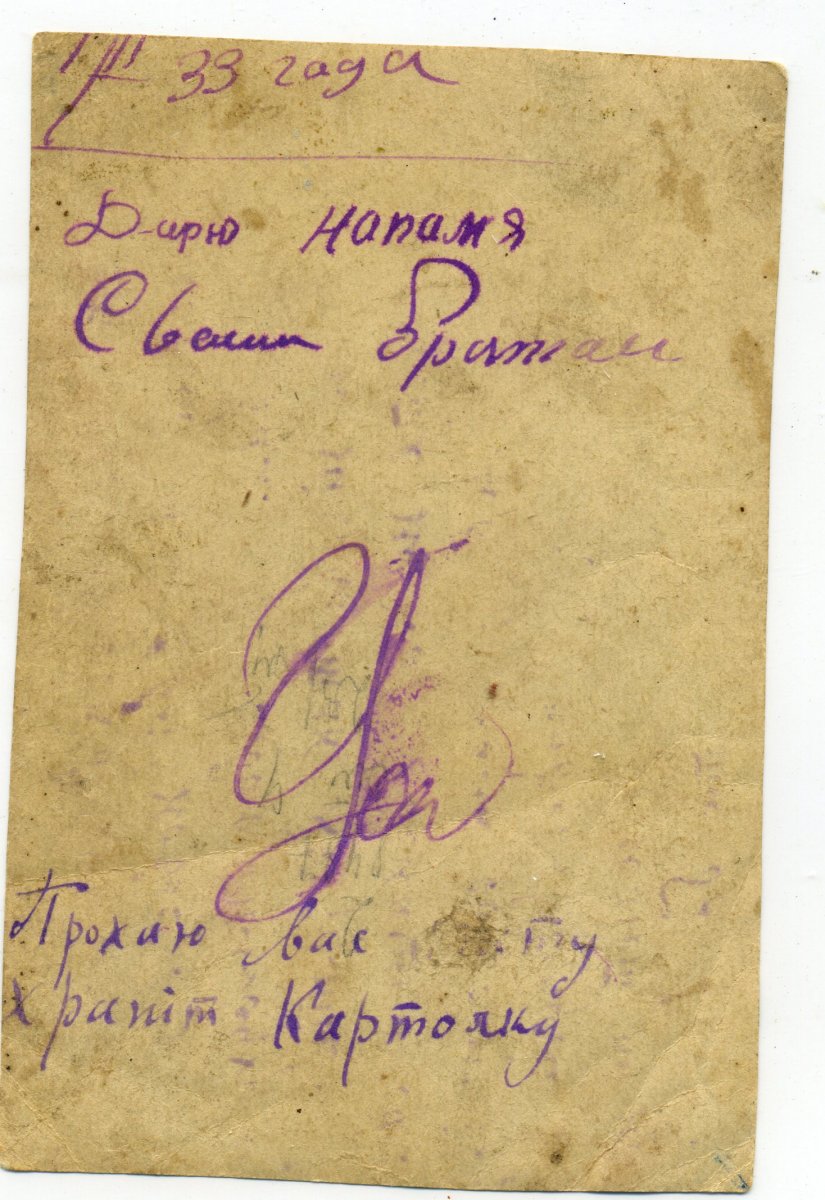 33 года
Дарю напамя
Своим братам
Прохаю вас эту
храніт Картолку